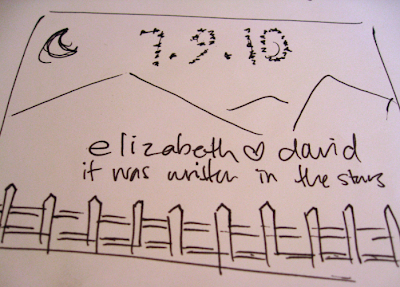 7.9.10
elizabeth ♡ david
it was written in the stars